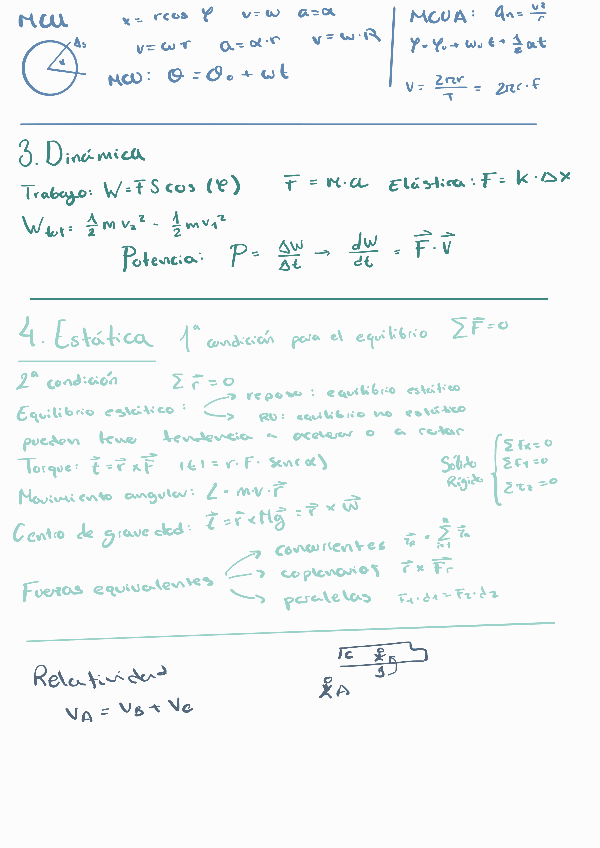 MCU x = r cos φ v = w a = α
v = w r a = α · r v = w · R
MCU: θ = θ₀ + wt
MCUA: an = v²/r
φ = φ₀ + w₀ t + 1/2 αt
v = 2πr/T = 2πr · f
3. Dinámica
Trabajo: W = F S cos (φ) F = M · a Elástica: F = k · Δx
Wtot = 1/2 m v₂² - 1/2 m v₁²
Potencia: P = ΔW/Δt → dW/dt = F · v
4. Estática 1ª condición para el equilibrio ΣF = 0
2ª condición Σ r = 0
Equilibrio estático: → reposo: equilibrio estático
→ RU: equilibrio no estático
pueden tener tendencia a acelerar o a rotar
Torque: t = r × F |t| = r · F · sen(α)
Sólido Rígido { ΣFx = 0
ΣFy = 0
Στz = 0
Movimiento angular: L = m · v · r
Centro de gravedad: t = r × Mg = r × w
Fuerzas equivalentes → concurrentes
→ coplanarios r × Fr
→ paralelas F₁ · d₁ = F₂ · d₂
Relatividad
VA = VB + Vc
C
B
A